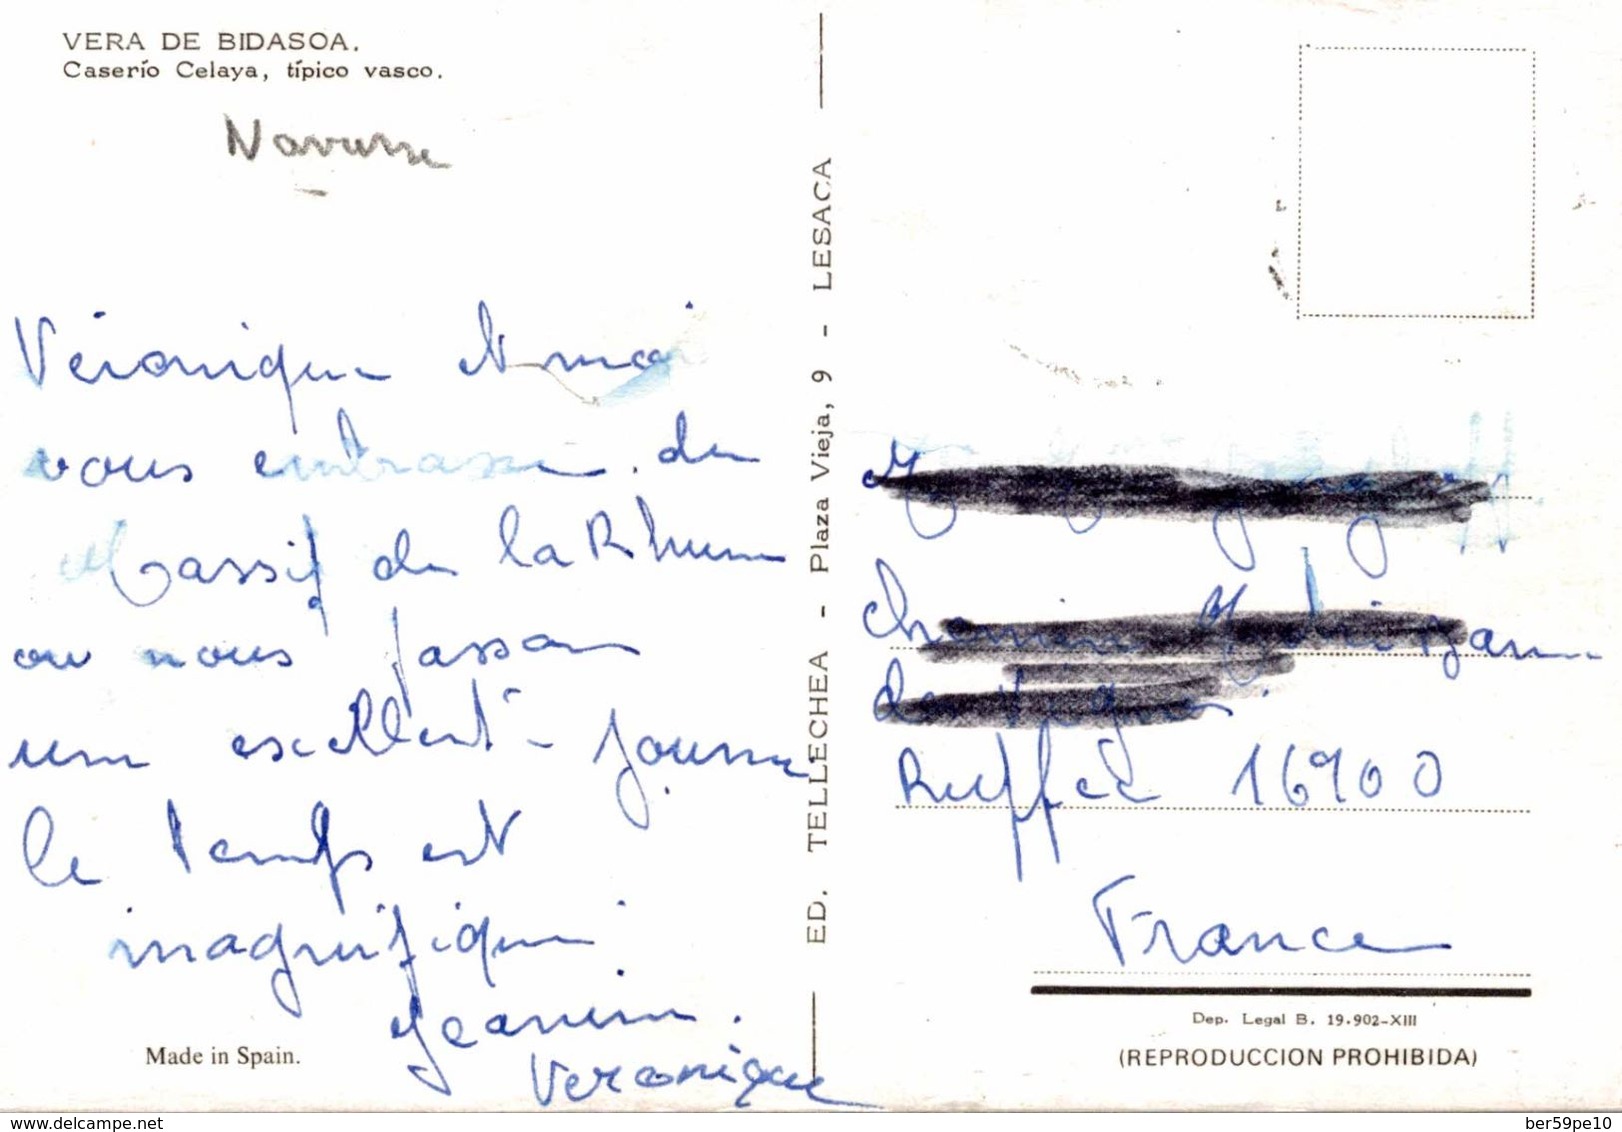 VERA DE BIDASOA.
Caserío Celaya, típico vasco.
Navarre
Véronique et moi
vous embrasse de
Massif de la Rhune
ou nous passon
une excellente journe
le temps est
magnifique
Jeanine.
Veronique
Made in Spain.
ED. TELLECHEA - Plaza Vieja, 9 - LESACA
chemin
de
Ruffec 16900
France
Dep. Legal B. 19.902-XIII
(REPRODUCCION PROHIBIDA)
www.delcampe.net
ber59pe10